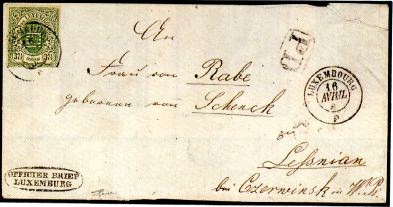 An
Frau von Rabe
geboren von Schenck
zu
Lessnian
bei Czerwinsk in W. Pr.
PD
LUXEMBOURG
16
AVRIL
OFFICIER BRIEF
LUXEMBURG
37½